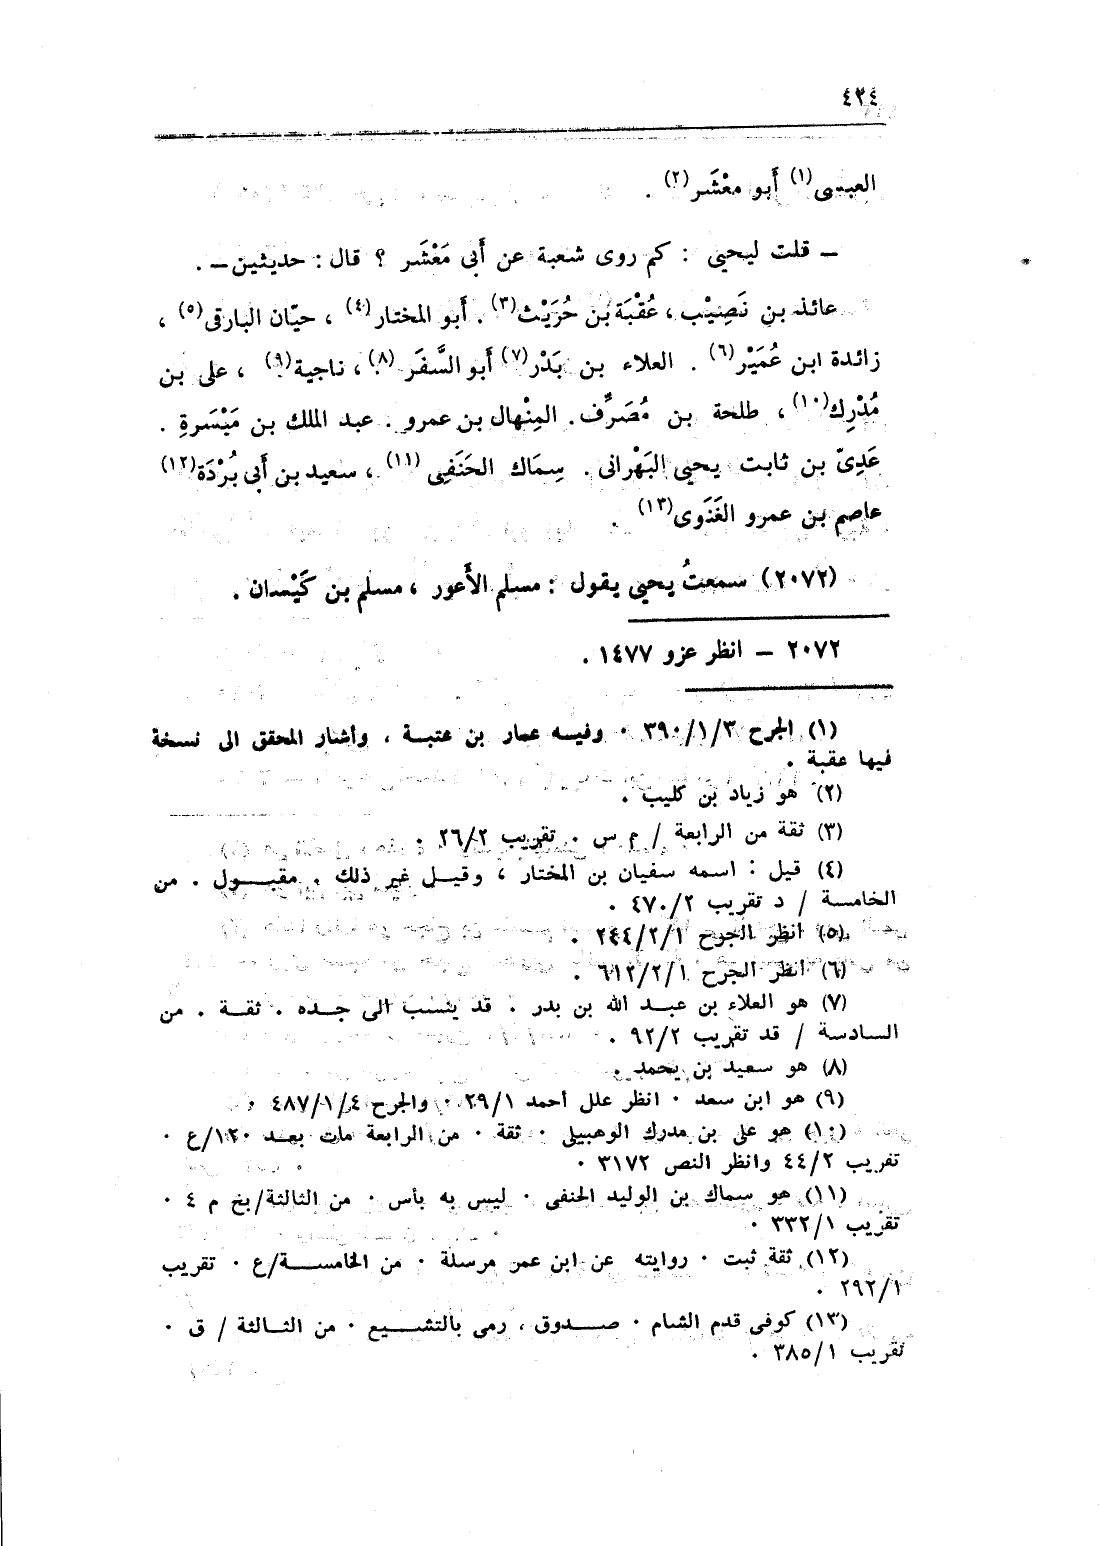 ٤٣٤
العبسى(١) أَبو معْشَر(٢) .
— قلت ليحيى : كم روى شعبة عن أَبى مَعْشَر ؟ قال : حديثين — .
عائذ بن نَصِيْب ، عُقْبَة بن حُرَيْث(٣) . أَبو المختار(٤) ، حيّان البارقى(٥) ،
زائدة ابن عُمَيْر(٦) . العلاء بن بَدْر(٧) أَبو السَّفَر(٨) ، ناجية(٩) ، على بن
مُدْرِك(١٠) ، طلحة بن مُصَرِّف . المِنْهال بن عمرو . عبد الملك بن مَيْسَرةِ .
عَدِىّ بن ثابت يحيى البَهْرانى . سِمَاك الحَنَفِى (١١) ، سعيد بن أَبى بُرْدَة(١٢)
عاصم بن عمرو الغَنَوى(١٣) .
(٢٠٧٢) سمعتُ يحيى يقول : مسلم الأَعور ، مسلم بن كَيْسان .
٢٠٧٢ — انظر عزو ١٤٧٧ .
(١) الجرح ٣٩٠/١/٣ . وفيه عمار بن عتبة ، وأشار المحقق الى نسخة
فيها عقبة .
(٢) هو زياد بن كليب .
(٣) ثقة من الرابعة / م س . تقريب ٢٦/٢ .
(٤) قيل : اسمه سفيان بن المختار ، وقيل غير ذلك . مقبول . من
الخامسة / د تقريب ٤٧٠/٢ .
(٥) انظر الجرح ٢٤٤/٢/١ .
(٦) انظر الجرح ٦١٢/٢/١ .
(٧) هو العلاء بن عبد الله بن بدر . قد ينسب الى جده . ثقة . من
السادسة / قد تقريب ٩٢/٢ .
(٨) هو سعيد بن يحمد .
(٩) هو ابن سعد . انظر علل أحمد ٢٩/١ . والجرح ٤٨٧/١/٤ .
(١٠) هو على بن مدرك الوهبيلى . ثقة . من الرابعة مات بعد ١٢٠/ع .
تقريب ٤٤/٢ وانظر النص ٣١٧٢ .
(١١) هو سماك بن الوليد الحنفى . ليس به بأس . من الثالثة/بخ م ٤ .
تقريب ٣٣٢/١ .
(١٢) ثقة ثبت . روايته عن ابن عمر مرسلة . من الخامسة/ع . تقريب
٢٩٢/١ .
(١٣) كوفى قدم الشام . صدوق ، رمى بالتشيع . من الثالثة / ق .
تقريب ٣٨٥/١ .